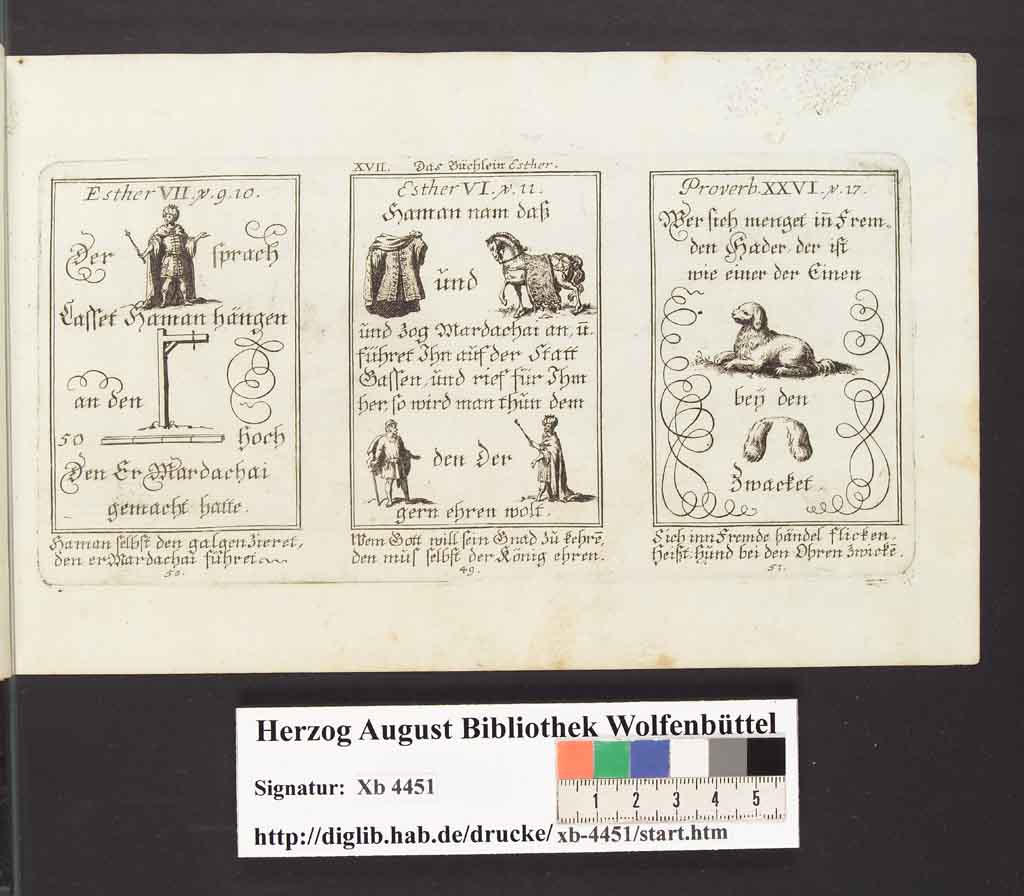 XVII. Das Büchlein Esther.
Esther VII. v. 9. 10.
Der sprach
Lasset Haman hängen
an den
50 hoch
Den Er Mardachai
gemacht hatte.
Haman selbst den galgen zieret,
den er Mardachai führet
50.
Esther VI. v. 11.
Haman nam daß
und
und zog Mardachai an, u.
führet Ihn auf der Statt
Gassen, und rief für Ihm
her, so wird man thun dem
den Der
gern ehren wolt.
Wem Gott will sein Gnad zu kehrē,
den mus selbst der König ehren.
49.
Proverb. XXVI. v. 17.
Wer sich menget in Frem-
den Hader der ist
wie einer der Einen
beÿ den
Zwacket.
Sich inn Fremde händel flicken,
Heißt Hund bei den Ohren zwickē.
51.
Herzog August Bibliothek Wolfenbüttel
Signatur: Xb 4451
1 2 3 4 5
http://diglib.hab.de/drucke/ xb-4451/start.htm